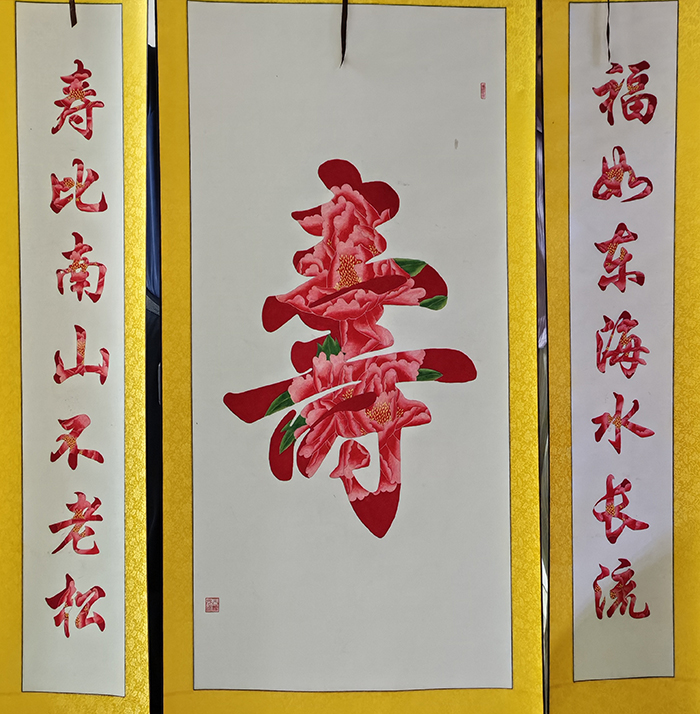 福如东海水长流
寿
寿比南山不老松